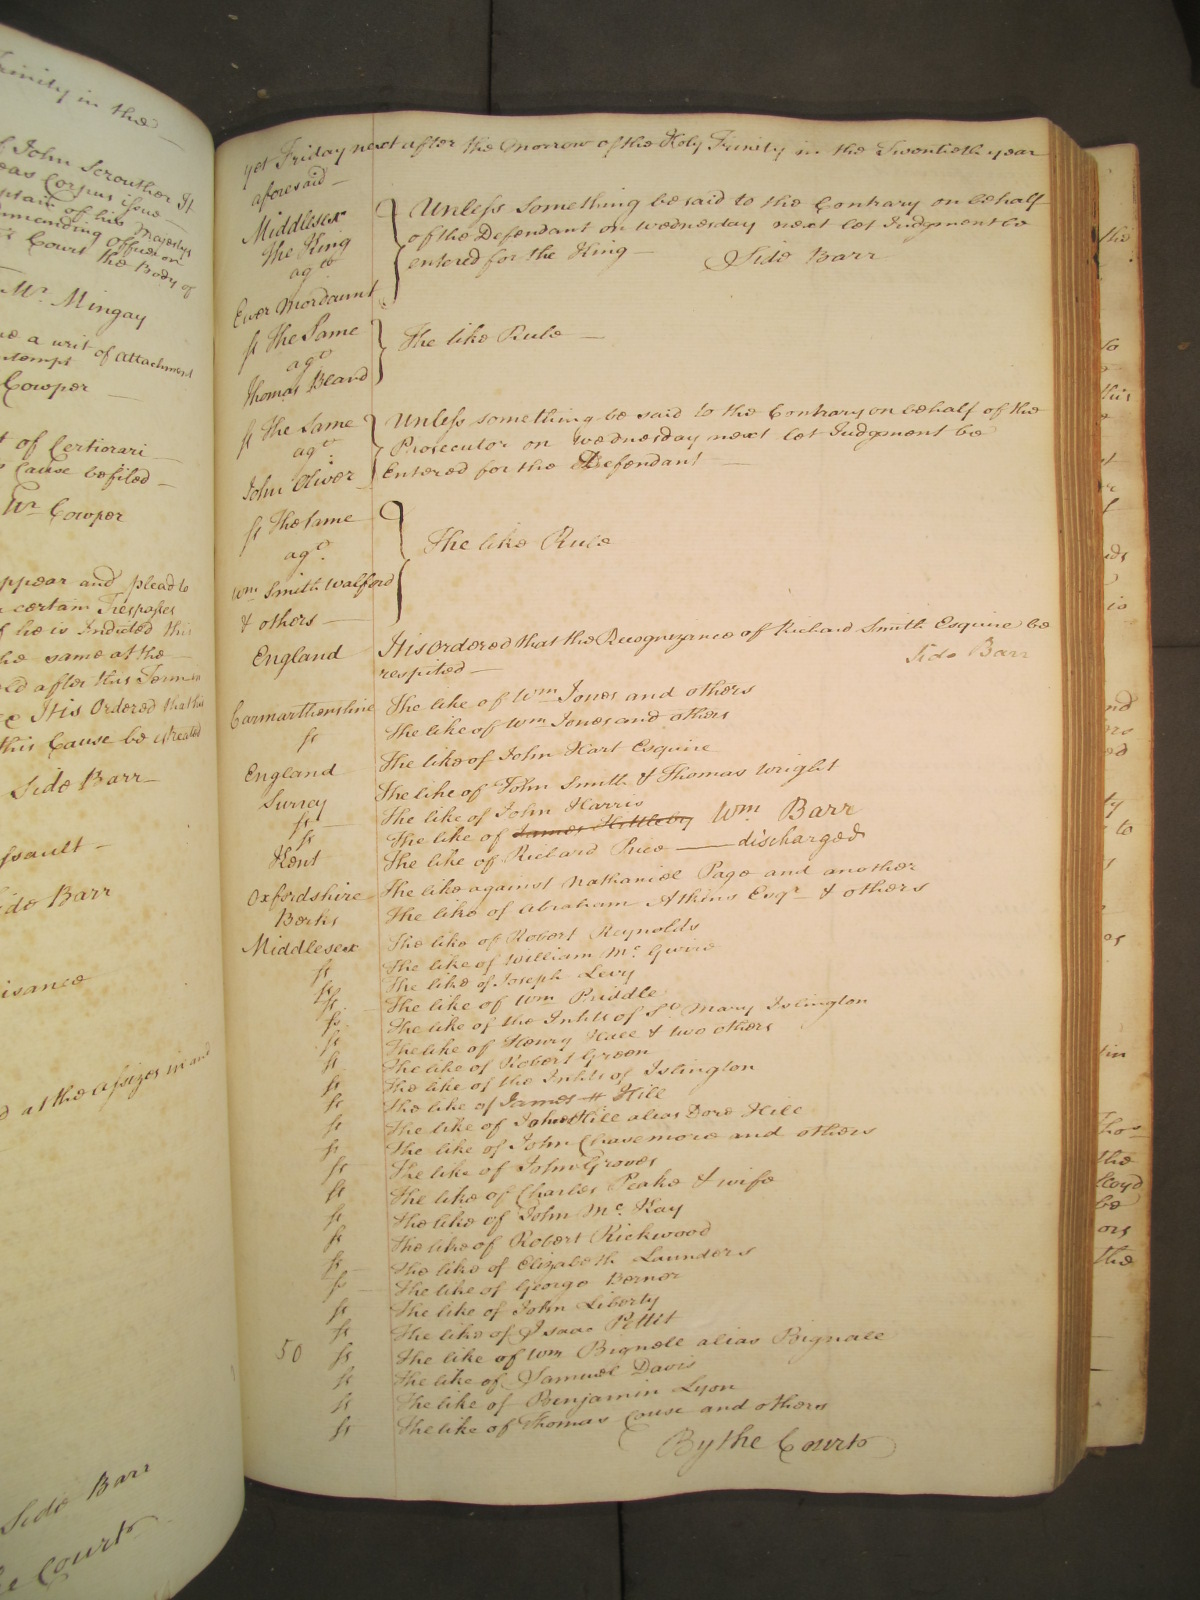 Trinity in the
John Scrouther It
eas Corpus issue
ptain of his Majestys
mmanding officer on
Court the Body of
Mr. Mingay
a writ of attachment
ntempt
Cowper
of Certiorari
Cause be filed
Mr Cowper
ppear and plead to
certain Trespasses
he is Indicted this
the same at the
after this Term
It is Ordered that this
this Cause be estreated
Side Barr
ssault
ide Barr
isance
at the assizes in and
Side Barr
e Court
yet Friday next after the Morrow of the Holy Trinity in the Twentieth year
aforesaid
Middlesex
The King
agt
Ewer Mordaunt
Unless something be said to the Contrary on behalf
of the Defendant on Wednesday next let Judgment be
entered for the King Side Barr
ss The Same
agt
Thomas Beard
The like Rule
ss The Same
agt
John Oliver
Unless something be said to the Contrary on behalf of the
Prosecutor on Wednesday next let Judgment be
Entered for the Defendant
ss The same
agt
Wm Smith Walford
& others
The like Rule
England It is Ordered that the Recognizance of Richard Smith Esquire be
respited Side Barr
Carmarthenshire The like of Wm Jones and others
ss The like of Wm Jones and others
England The like of John Hart Esquire
Surrey The like of John Smith & Thomas Wright
ss The like of John Harris
ss The like of Wm Barr
Kent The like of Richard Price discharged
Oxfordshire The like against Nathaniel Page and another
Berks The like of Abraham Atkins Esqr & others
Middlesex The like of Robert Reynolds
ss The like of William Mc Gwire
ss The like of Joseph Levy
ss The like of Wm Priddle
ss The like of the Inhts of St Mary Islington
ss The like of Henry Hall & two others
ss The like of Robert Green
ss The like of the Inhts of Islington
ss The like of James Hill
ss The like of John Hill alias Dore Hill
ss The like of John Chasemore and others
ss The like of John Groves
ss The like of Charles Peake & wife
ss The like of John Mc Kay
ss The like of Robert Rickwood
ss The like of Elizabeth Launders
ss The like of George Bernor
ss The like of John Liberty
ss The like of Isaac Pettit
50 ss The like of Wm Bignell alias Bignall
ss The like of Samuel Davis
ss The like of Benjamin Lyon
ss The like of Thomas Couse and others
By the Court